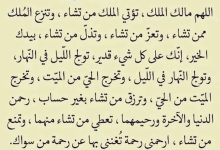 اللهم مالك الملك ، تؤتي الملك من تشاء ، وتنزع المُلك
ممن تشاء ، وتعزّ من تشاء ، وتذلّ من تشاء ، بيدك
الخير، إنّك على كلّ شيء قدير، تولج اللّيل في النّهار،
وتولج النّهار في اللّيل ، وتخرج الحيّ من الميّت ، وتخرج
الميّت من الحيّ ، وترزق من تشاء بغير حساب ، رحمن
الدنيا والآخرة ورحيمهما ، تعطي من تشاء منهما ، وتمنع
من تشاء ، ارحمني رحمة تُغنني بها عن رحمة من سواك.